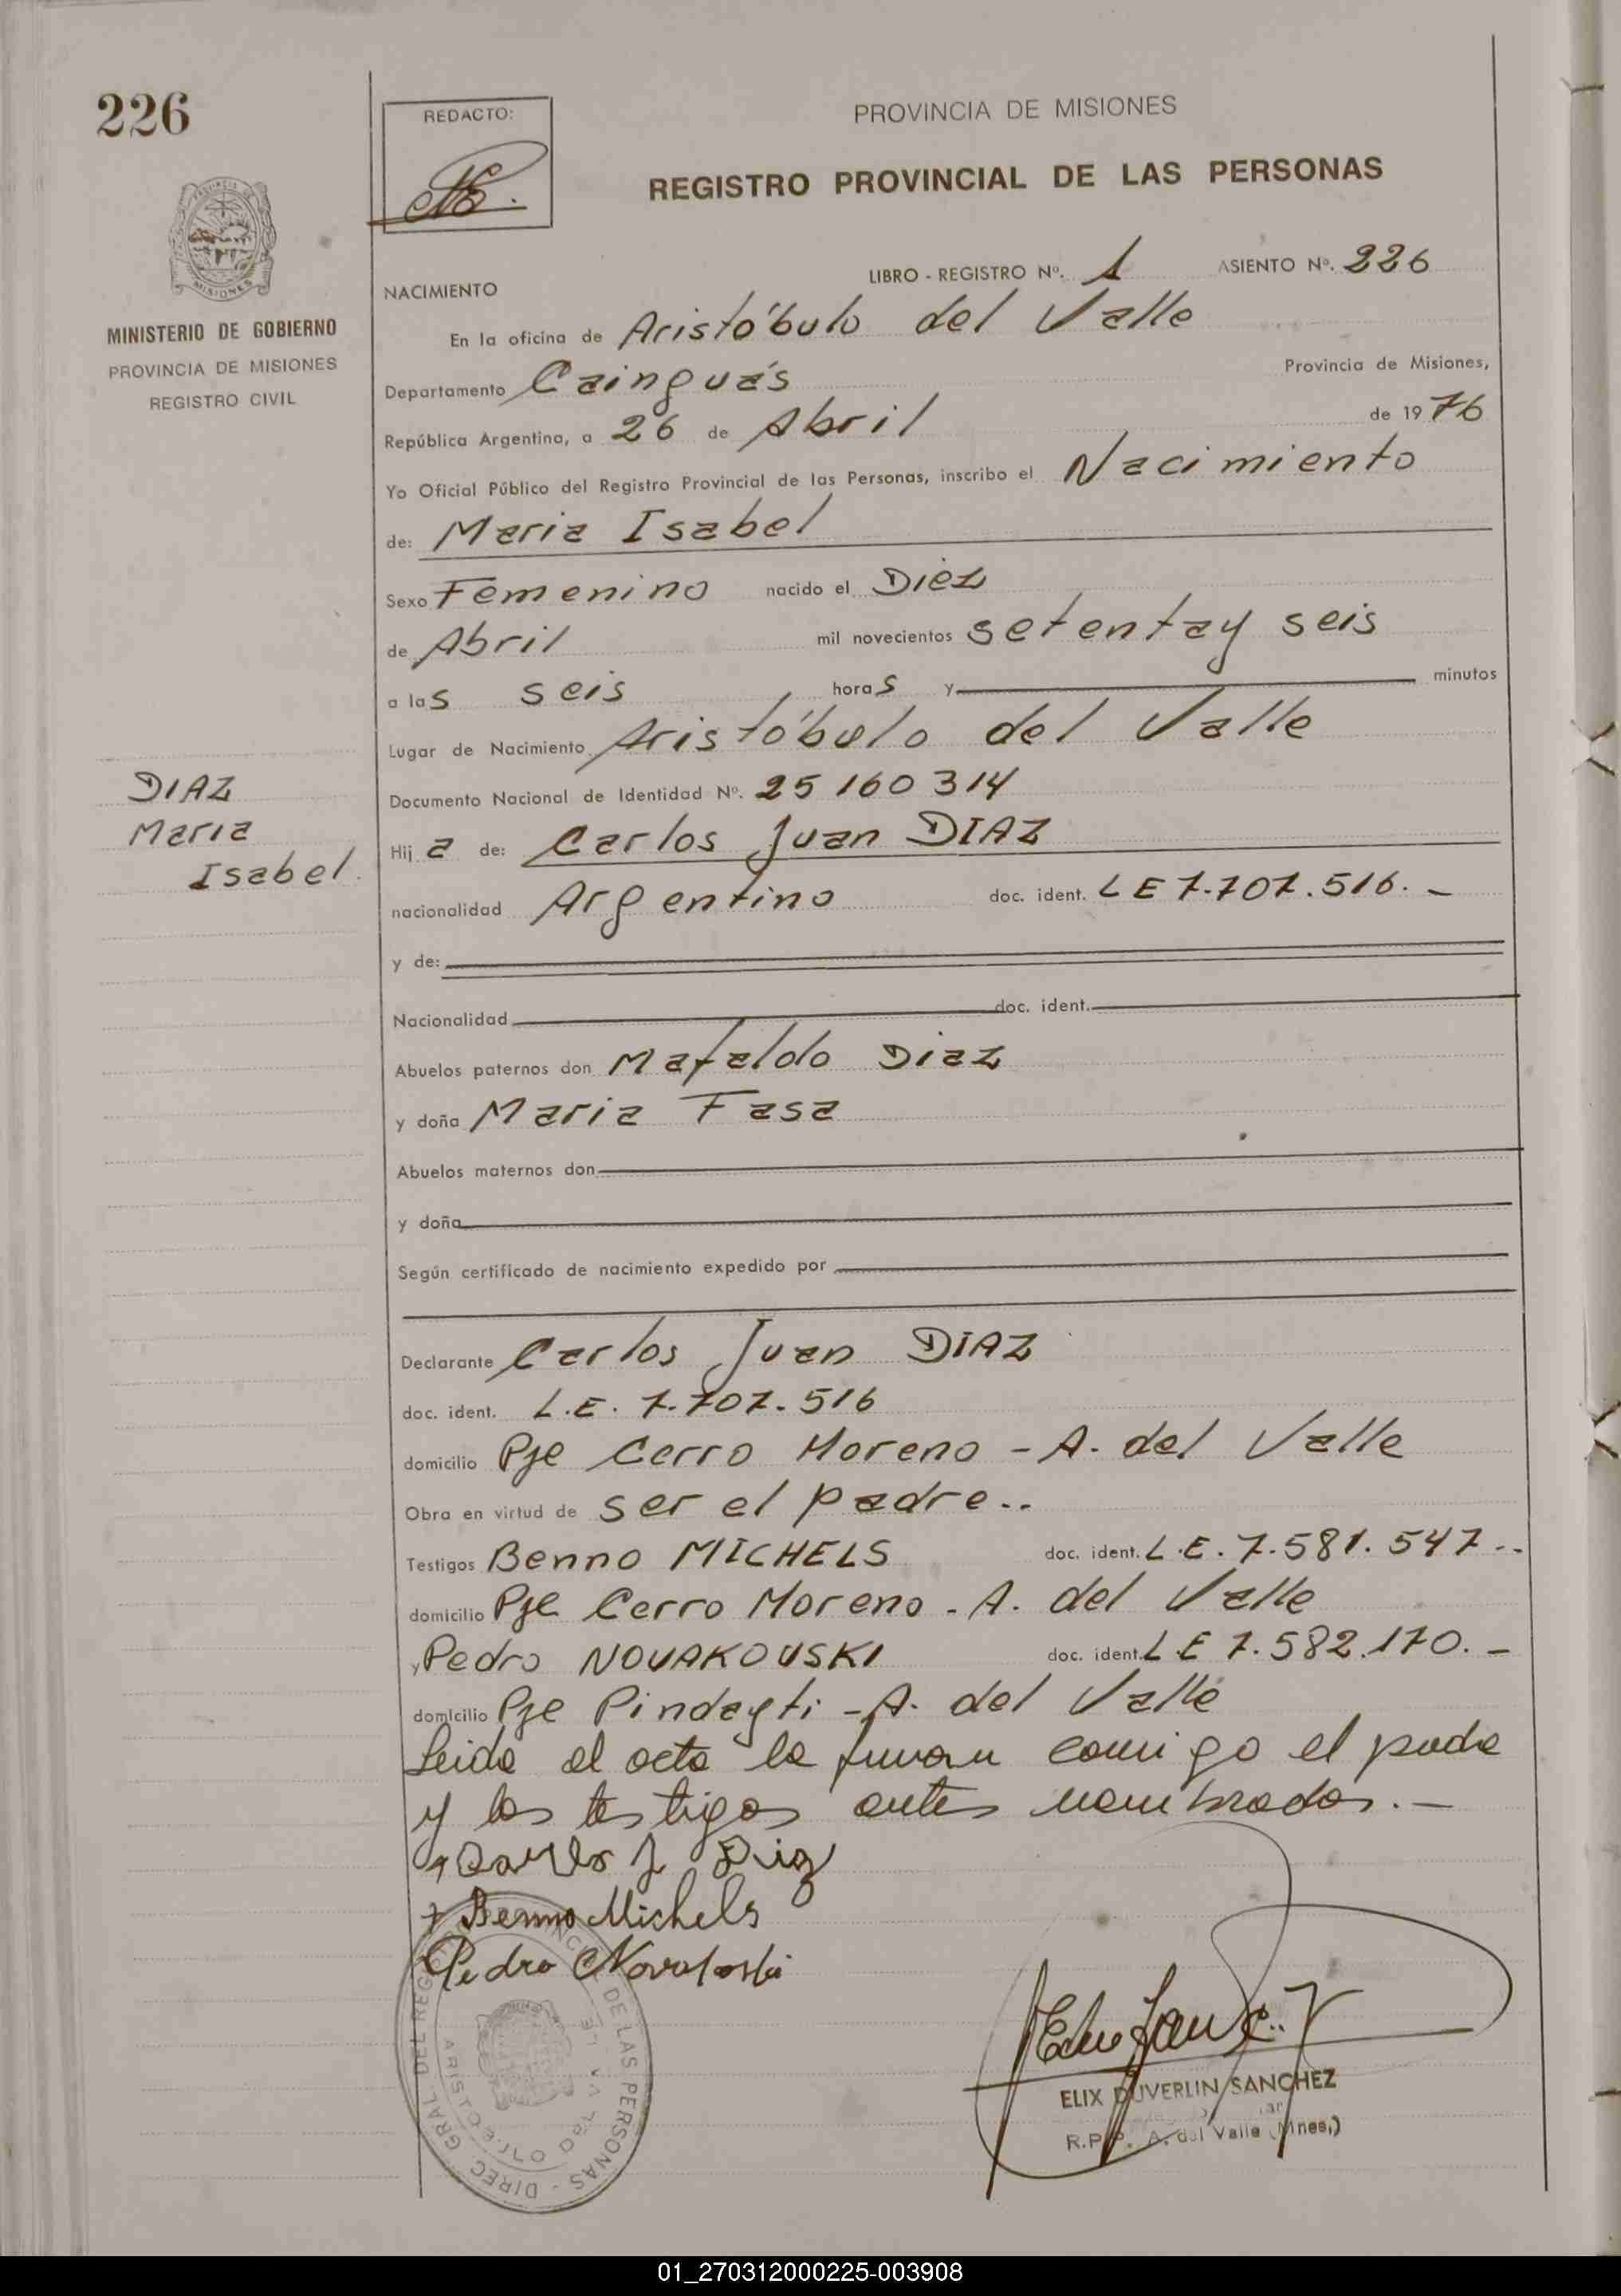 226
REDACTO:
PROVINCIA DE MISIONES
REGISTRO PROVINCIAL DE LAS PERSONAS
MISIONES
MINISTERIO DE GOBIERNO
PROVINCIA DE MISIONES
REGISTRO CIVIL
NACIMIENTO LIBRO - REGISTRO Nº. 1 ASIENTO Nº. 226
En la oficina de Aristóbulo del Valle
Departamento Cainguás Provincia de Misiones,
República Argentina, a 26 de Abril de 1976
Yo Oficial Público del Registro Provincial de las Personas, inscribo el Nacimiento
de: Maria Isabel
Sexo Femenino nacido el Diez
de Abril mil novecientos setentay seis
a las seis horas y minutos
Lugar de Nacimiento Aristóbulo del Valle
DIAZ
Maria
Isabel.
Documento Nacional de Identidad Nº. 25 160 314
Hija de: Carlos Juan DIAZ
nacionalidad Argentino doc. ident. L E 7.707.516. -
y de:
Nacionalidad doc. ident.
Abuelos paternos don Mafaldo Diaz
y doña Maria Fasa
Abuelos maternos don
y doña
Según certificado de nacimiento expedido por
Declarante Carlos Juan DIAZ
doc. ident. L.E. 7.707.516
domicilio Pje Cerro Moreno - A. del Valle
Obra en virtud de ser el padre..
Testigos Benno MICHELS doc. ident. L.E. 7.581.547..
domicilio Pje Cerro Moreno - A. del Valle
y Pedro NOVAKOVSKI doc. ident. L E 7.582.170. -
domicilio Pje Pindayti - A. del Valle
Leida el acta la firman conmigo el padre
y los testigos antes nombrados. -
Carlos J Diaz
Benno Michels
Pedro Novakoski
DIREC. GRAL DEL REG DE LAS PERSONAS
ELIX DUVERLIN SANCHEZ
R.P.P. A. del Valle (Mnes,)
01_270312000225-003908